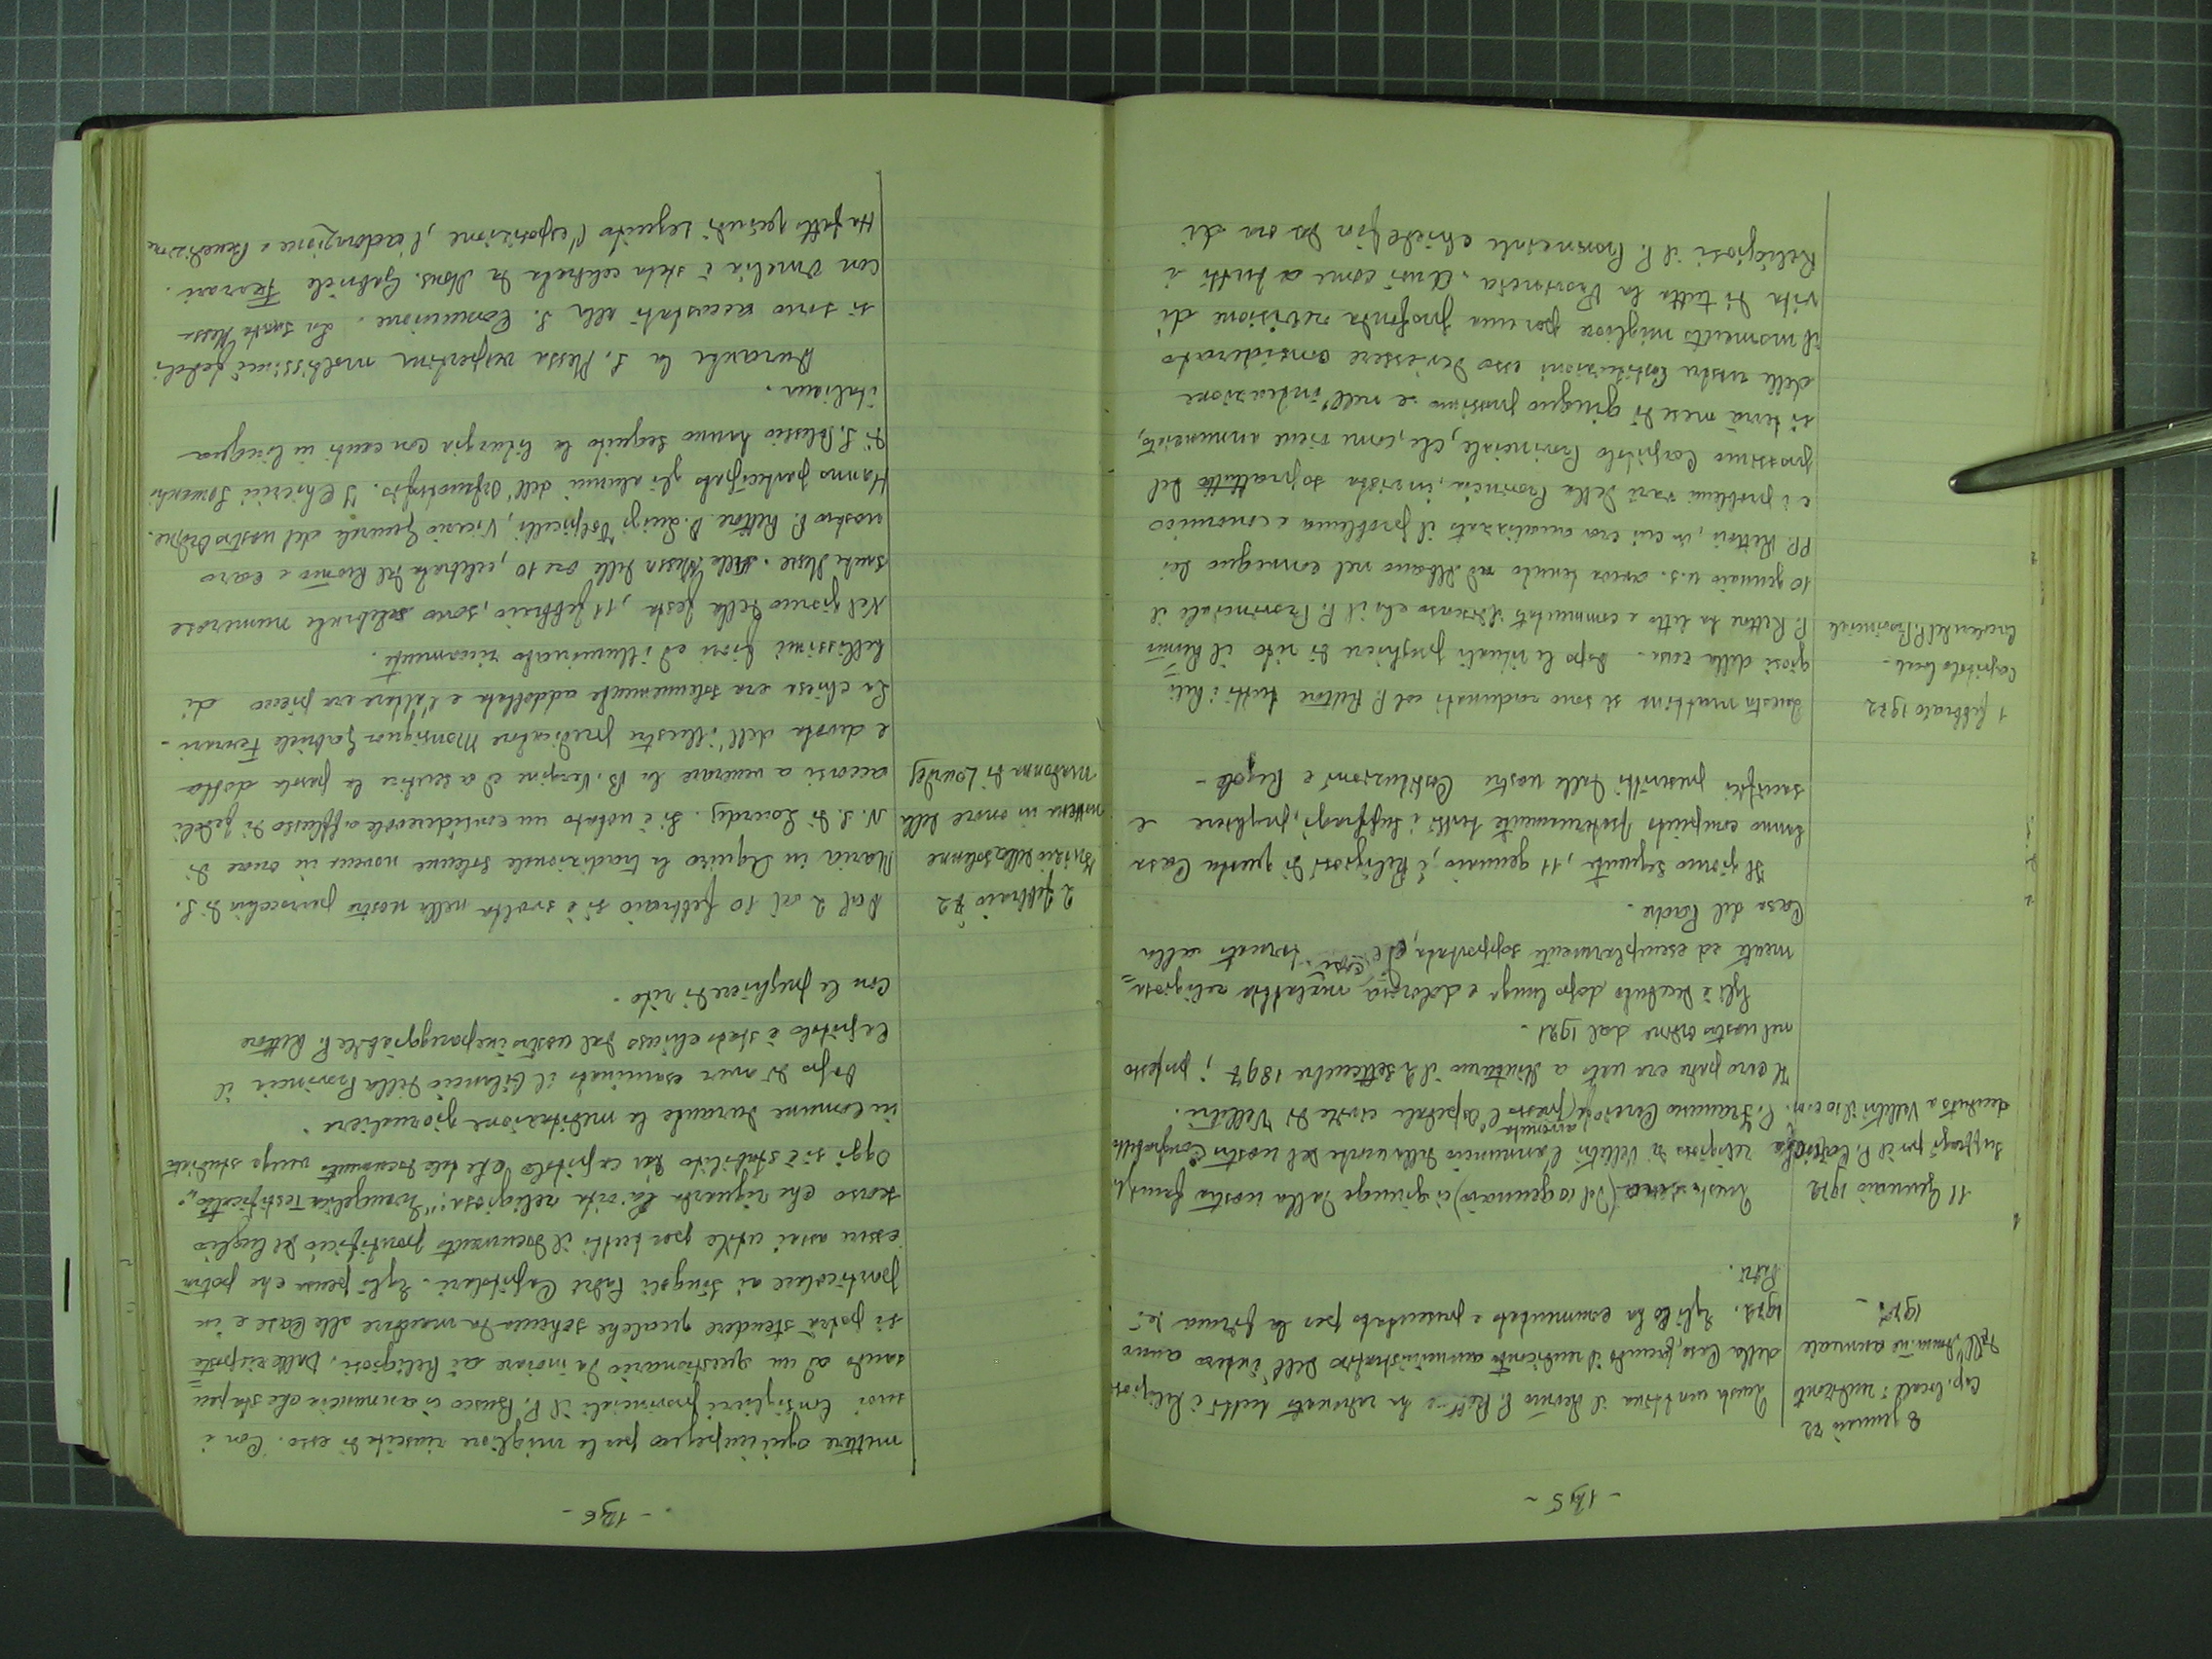 - 195 -
8 gennaio 72
Cap. locale: rendiconto
dell'Ammin.ne annuale
197
Questa mattina il Rev.mo P. Rettore ha radunato tutti i Religiosi
della Casa, facendo il rendiconto amministrativo dell'intero anno
1972. Egli lo ha commentato e presentato per la firma ai
Padri.
11 Gennaio 1972
Suffragi per il P.
deceduto a Velletri il 10 c.m.
Questa sera (del 10 gennaio) ci giunge dalla nostra famiglia
religiosa di Velletri l'annuncio della morte del nostro Confratello
P. Francesco avvenuta presso l'Ospedale civile di Velletri.
Il caro padre era nato a Minturno il 2 settembre 1897; professo
nel nostro Ordine dal 1921.
Egli è deceduto dopo lunga e dolorosa malattia religiosa=
mente ed esemplarmente sopportata, ed è così tornato alla
Casa del Padre.
Il giorno seguente, 11 gennaio, i Religiosi di questa Casa
hanno compiuto fraternamente tutti i suffragi, preghiere e
sacrifici prescritti dalle nostre Costituzioni e Regole -
1 febbraio 1972
Capitolo locale -
Circolare del P. Provinciale
Questa mattina si sono radunati col P. Rettore tutti i Reli=
giosi della casa. Dopo le rituali preghiere di rito il Rev.mo
P. Rettore ha letto e commentato il discorso che il P. Provinciale il
10 gennaio u.s. aveva tenuto ad Albano nel convegno dei
PP. Rettori, in cui era analizzato il problema economico
e i problemi vari della Provincia, in vista soprattutto del
prossimo Capitolo Provinciale, che, come viene annunciato,
si terrà mese di giugno prossimo e nell'indicazione
delle nostre Costituzioni esso dev'essere considerato
il momento migliore per una profonda revisione di
vita di tutta la Provincia. Anzi come a tutti i
Religiosi il P. Provinciale chiede fin da ora di
- 196 -
mettere ogni impegno per la migliore riuscita di esso. Con i
suoi Consiglieri provinciali il P. Busco ci annuncia che sta pen=
sando ad un questionario da inviare ai Religiosi. Dalle risposte
si potrà stendere qualche schema da inviare alle Case e in
particolare ai singoli Padri Capitolari. Egli pensa che potrà
essere assai utile per tutti il documento pontificio del luglio
scorso che riguarda la vita religiosa: "Evangelica Testificatio".
Oggi si è stabilito dai capitolari che tale documento venga studiato
in comune durante la meditazione giornaliera.
Dopo di aver esaminato il bilancio della Provincia il
Capitolo è stato chiuso dal nostro impareggiabile P. Rettore
con le preghiere di rito.
2 febbraio 72
Inizio della solenne
novena in onore della
Madonna di Lourdes
Dal 2 al 10 febbraio si è svolta nella nostra parrocchia di S.
Maria in Aquiro la tradizionale solenne novena in onore di
N. S. di Lourdes. Si è notato un considerevole afflusso di fedeli
accorsi a venerare la B. Vergine ed a sentire la parola dotta
e devota dell'illustre predicatore Monsignor Gabriele Ferrari.
La chiesa era solennemente addobbata e l'altare era pieno di
bellissimi fiori ed illuminato riccamente.
Nel giorno della festa, 11 febbraio, sono celebrate numerose
sante Messe. Alla Messa delle ore 10, celebrata dal Rev.mo e caro
nostro P. Rettore D. Luigi Volpicelli, Vicario Generale del nostro Ordine.
Hanno partecipato gli alunni dell'Orfanotrofio. I Chierici Somaschi
di S. Alessio hanno seguito la liturgia con canti in lingua
italiana.
Durante la S. Messa vespertina moltissimi fedeli
si sono accostati alla S. Comunione. La santa Messa
con Omelia è stata celebrata da Mons. Gabriele Ferrari.
Ha fatto quindi seguito l'esposizione, l'adorazione e Benedizione